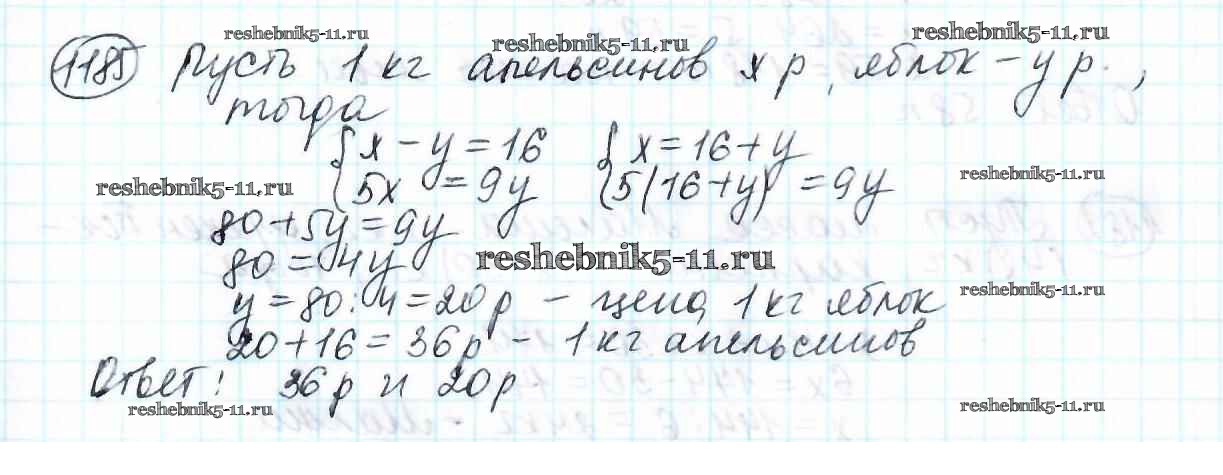 reshebnik5-11.ru reshebnik5-11.ru reshebnik5-11.ru
1185 Пусть 1 кг апельсинов x р, яблок – y р.,
тогда
{ x – y = 16 { x = 16 + y
reshebnik5-11.ru { 5x = 9y { 5(16+y) = 9y reshebnik5-11.ru
80 + 5y = 9y
80 = 4y reshebnik5-11.ru
y = 80 : 4 = 20 р – цена 1 кг яблок reshebnik5-11.ru
20 + 16 = 36 р – 1 кг апельсинов
Ответ: 36 р и 20 р
reshebnik5-11.ru reshebnik5-11.ru